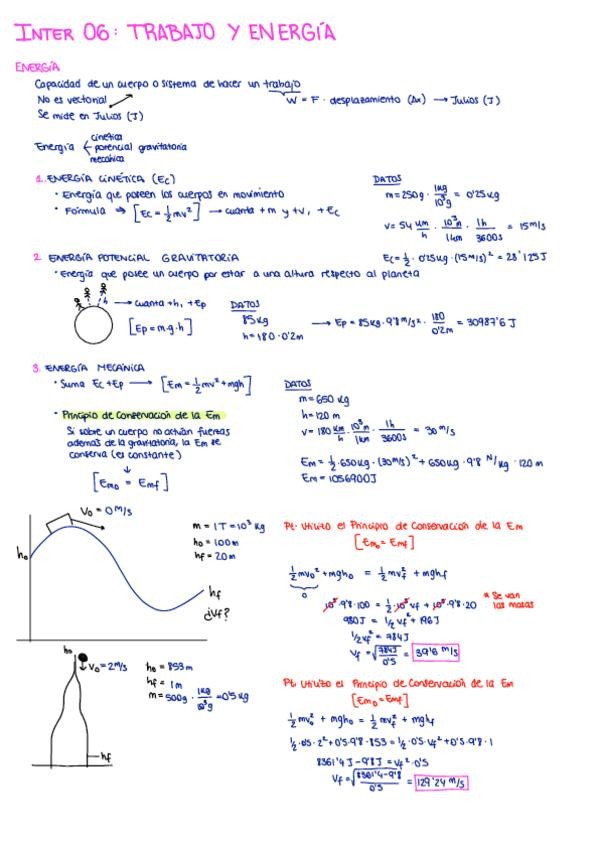 INTER 06: TRABAJO Y ENERGÍA
ENERGÍA
Capacidad de un cuerpo o sistema de hacer un trabajo
No es vectorial
W = F · desplazamiento (Δx) → Julios (J)
Se mide en Julios (J)
cinética
Energía potencial gravitatoria
mecánica
1. ENERGÍA CINÉTICA (Ec)
· Energía que poseen los cuerpos en movimiento
· Fórmula ⇒ [Ec = 1/2 mv²] → cuanta + m y + v, + Ec
DATOS
m = 250g · 1kg/10³g = 0'25kg
v = 54 km/h · 10³m/1km · 1h/3600s = 15m/s
Ec = 1/2 · 0'25kg · (15m/s)² = 28'125J
2. ENERGÍA POTENCIAL GRAVITATORIA
· Energía que posee un cuerpo por estar a una altura respecto al planeta
h → cuanta + h, + Ep
[Ep = m·g·h]
DATOS
85kg
h = 180 · 0'2m
→ Ep = 85kg · 9'8m/s² · 180/0'2m = 30987'6J
3. ENERGÍA MECÁNICA
· Suma Ec + Ep → [Em = 1/2 mv² + mgh]
· Principio de Conservación de la Em
Si sobre un cuerpo no actúan fuerzas
además de la gravitatoria, la Em se
conserva (es constante)
↓
[Em₀ = Emf]
DATOS
m = 650 kg
h = 120 m
v = 180 km/h · 10³m/1km · 1h/3600s = 30 m/s
Em = 1/2 · 650kg · (30m/s)² + 650kg · 9'8 N/kg · 120m
Em = 1056900J
V₀ = 0 m/s
h₀
hf
¿Vf?
m = 1T = 10³ kg
h₀ = 100m
hf = 20m
Pt. Utilizo el Principio de Conservación de la Em
[Em₀ = Emf]
1/2 mv₀² + mgh₀ = 1/2 mvf² + mghf
0
10³·9'8·100 = 1/2·10³ vf² + 10³·9'8·20
* Se van
las masas
980J = 1/2 vf² + 196J
1/2 vf² = 784J
Vf = √784J/0'5 = 39'6 m/s
h₀
V₀ = 2m/s
hf
h₀ = 853m
hf = 1m
m = 500g · 1kg/10³g = 0'5kg
Pt. Utilizo el Principio de Conservación de la Em
[Em₀ = Emf]
1/2 mv₀² + mgh₀ = 1/2 mvf² + mghf
1/2·0'5·2² + 0'5·9'8·853 = 1/2·0'5·vf² + 0'5·9'8·1
8361'4J − 9'8J = vf²·0'5
Vf = √8361'4−9'8/0'5 = 129'24 m/s